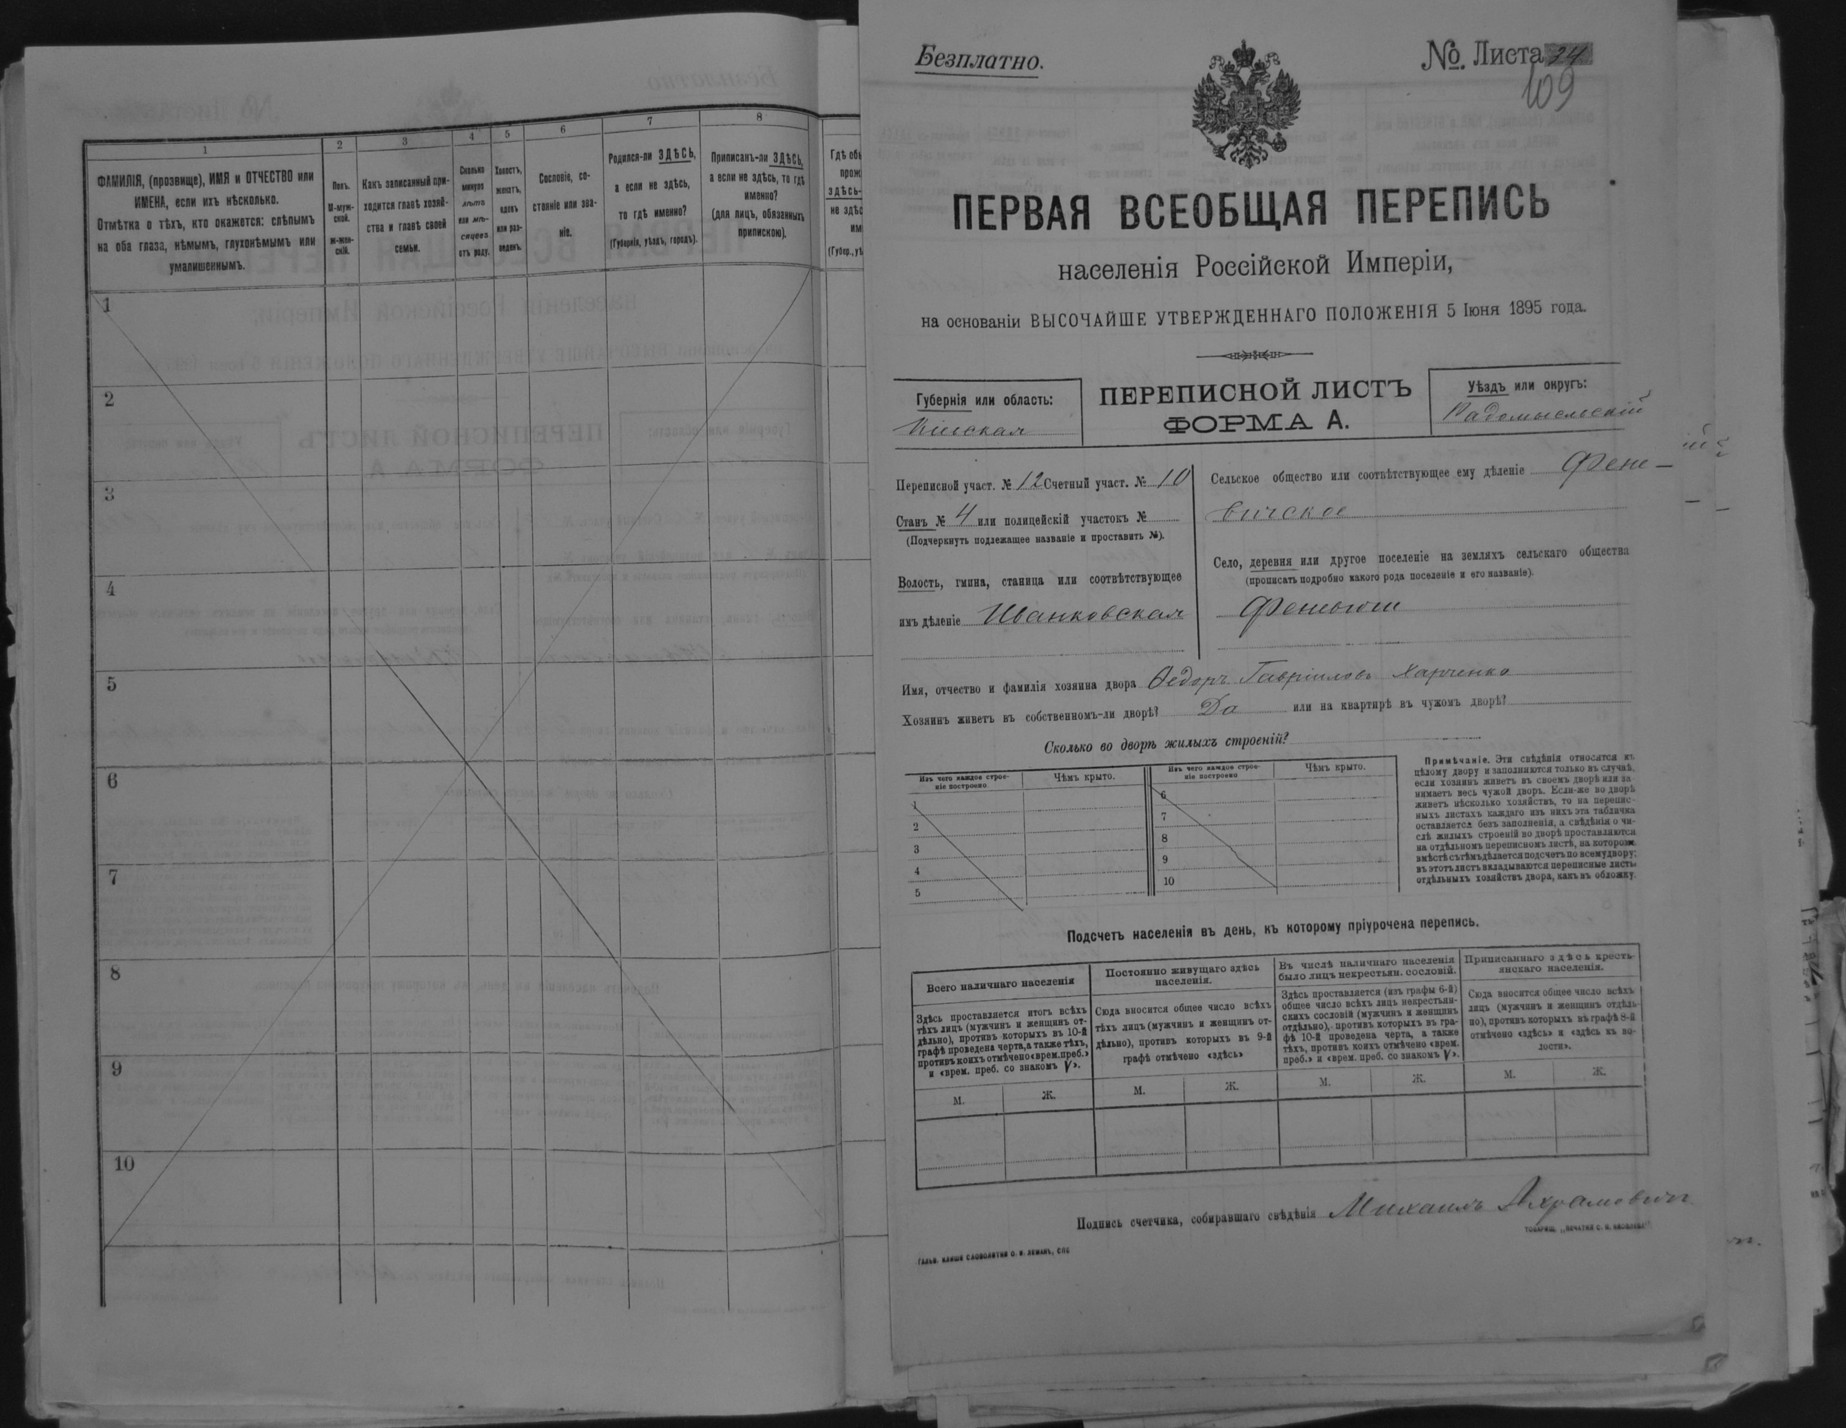 1
2
3
4
5
6
7
8
ФАМИЛІЯ, (прозвище), ИМЯ и ОТЧЕСТВО или
ИМЕНА, если ихъ нѣсколько.
Отмѣтка о тѣхъ, кто окажется: слѣпымъ
на оба глаза, нѣмымъ, глухонѣмымъ или
умалишеннымъ.
Полъ.
М-муж-
ской.
Ж-жен-
скій.
Какъ записанный при-
ходится главѣ хозяй-
ства и главѣ своей
семьи.
Сколько
минуло
лѣтъ
или мѣ-
сяцевъ
отъ роду.
Холостъ,
женатъ,
вдовъ
или раз-
веденъ.
Сословіе, со-
стояніе или зва-
ніе.
Родился-ли ЗДѢСЬ,
а если не здѣсь,
то гдѣ именно?
(Губернія, уѣздъ, городъ).
Приписанъ-ли ЗДѢСЬ,
а если не здѣсь, то гдѣ
именно?
(для лицъ, обязанныхъ
припискою).
1
2
3
4
5
6
7
8
9
10
Безплатно.
№ Листа 24
109
ПЕРВАЯ ВСЕОБЩАЯ ПЕРЕПИСЬ
населенія Россійской Имперіи,
на основаніи ВЫСОЧАЙШЕ УТВЕРЖДЕННАГО ПОЛОЖЕНІЯ 5 Іюня 1895 года.
Губернія или область:
Кіевская
ПЕРЕПИСНОЙ ЛИСТЪ
ФОРМА А.
Уѣздъ или округъ:
Радомысльскій
Переписной участ. № 12 Счетный участ. № 10
Станъ № 4 или полицейскій участокъ №
(Подчеркнуть подлежащее названіе и проставить №).
Волость, гмина, станица или соотвѣтствующее
имъ дѣленіе Иванковская
Сельское общество или соотвѣтствующее ему дѣленіе Фене-
вичское
Село, деревня или другое поселеніе на земляхъ сельскаго общества
(прописать подробно какого рода поселеніе и его названіе).
Имя, отчество и фамилія хозяина двора Ѳедоръ Гавріиловъ Харченко
Хозяинъ живетъ въ собственномъ-ли дворѣ? Да или на квартирѣ въ чужомъ дворѣ?
Сколько во дворѣ жилыхъ строеній?
Изъ чего каждое строе-
ніе построено
Чѣмъ крыто.
Изъ чего каждое строе-
ніе построено
Чѣмъ крыто.
1
2
3
4
5
6
7
8
9
10
Примѣчаніе. Эти свѣдѣнія относятся къ
цѣлому двору и заполняются только въ случаѣ,
если хозяинъ живетъ въ своемъ дворѣ или за-
нимаетъ весь чужой дворъ. Если-же во дворѣ
живетъ нѣсколько хозяйствъ, то на перепис-
ныхъ листахъ каждаго изъ нихъ эта табличка
оставляется безъ заполненія, а свѣдѣнія о чи-
слѣ жилыхъ строеній во дворѣ проставляются
на отдѣльномъ переписномъ листѣ, на которомъ
вмѣстѣ съ тѣмъ дѣлается подсчетъ по всему двору;
въ этотъ листъ вкладываются переписные листы
отдѣльныхъ хозяйствъ двора, какъ въ обложку.
Подсчетъ населенія въ день, къ которому пріурочена перепись.
Всего наличнаго населенія
Здѣсь проставляется итогъ всѣхъ
тѣхъ лицъ (мужчинъ и женщинъ от-
дѣльно), противъ которыхъ въ 10-й
графѣ проведена черта, а также тѣхъ,
противъ коихъ отмѣчено «врем. преб.»
и «врем. преб. со знакомъ V».
Постоянно живущаго здѣсь
населенія.
Сюда вносится общее число всѣхъ
тѣхъ лицъ (мужчинъ и женщинъ от-
дѣльно), противъ которыхъ въ 9-й
графѣ отмѣчено «здѣсь»
Въ числѣ наличнаго населенія
было лицъ некрестьян. сословій.
Здѣсь проставляется (изъ графы 6-й)
общее число всѣхъ лицъ некрестьян-
скихъ сословій (мужчинъ и женщинъ
отдѣльно), противъ которыхъ въ гра-
фѣ 10-й проведена черта, а также
тѣхъ, противъ коихъ отмѣчено «врем.
преб.» и «врем. преб. со знакомъ V».
Приписаннаго здѣсь кресть-
янскаго населенія.
Сюда вносится общее число всѣхъ
лицъ (мужчинъ и женщинъ отдѣль-
но), противъ которыхъ въ графѣ 8-й
отмѣчено «здѣсь» и «здѣсь въ во-
лости».
М.
Ж.
М.
Ж.
М.
Ж.
М.
Ж.
Подпись счетчика, собиравшаго свѣдѣнія Михаилъ Ахрамовичъ
ГАЛЬВ. КЛИШЕ СЛОВОЛИТНИ О. И. ЛЕМАНЪ, СПБ